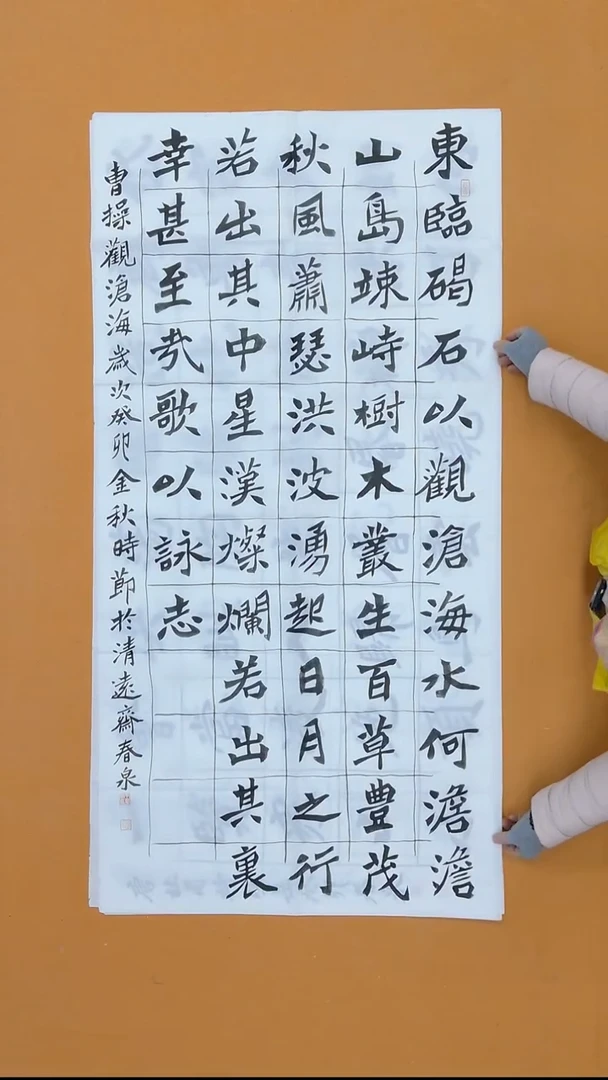 東臨碣石以觀滄海水何澹澹
山島竦峙樹木叢生百草豐茂
秋風蕭瑟洪波湧起日月之行
若出其中星漢燦爛若出其裏
幸甚至哉歌以詠志
曹操觀滄海歲次癸卯金秋時節於清遠齋春泉